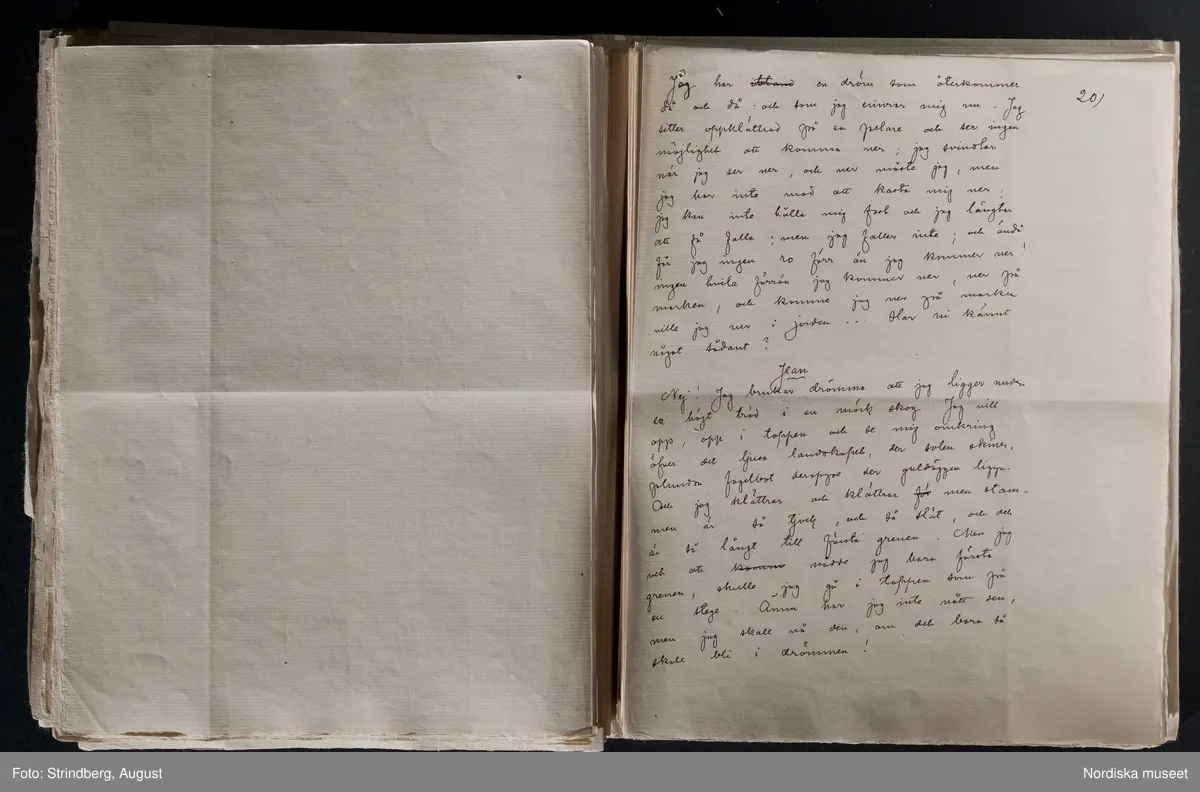 20)
Jag har ibland en dröm som återkommer
då och då: och som jag erinrar mig nu - Jag
sitter oppklättrad på en pelare och ser ingen
möjlighet att komma ner; jag svindlar
när jag ser ner, och ner måste jag, men
jag har inte mod att kasta mig ner.
jag kan inte hålla mig fast och jag längtar
att få falla; men jag faller inte; och ändå
får jag ingen ro förr än jag kommer ner!
ingen hvila förrän jag kommer ner, ner på
marken, och komme jag ner på marken
ville jag ner i jorden ... Har ni kännt
något sådant?
Jean
Nej! Jag brukar drömma att jag ligger under
ett högt träd i en mörk skog. Jag vill
opp, opp i toppen och se mig omkring
öfver det ljusa landskapet, der solen skiner,
plundra fogelbot deroppe der guldäggen ligga.
Och jag klättrar och klättrar för men stam-
men är så tjock, och så slät, och det
är så långt till första grenen. Men jag
vet att komme nådde jag bara första
grenen, skulle jag gå i toppen som på
en stege. Ännu har jag inte nått den,
men jag skall nå den, om det bara så
skall bli i drömmen!
Foto: Strindberg, August
Nordiska museet